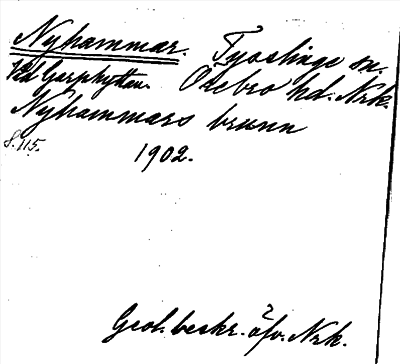 Nyhammar. Tysslinge sn.
Vid Garphyttan. Örebro hd. Nrk.
Nyhammars brunn
S. 115. 1902.
Geol. beskr. öfv. Nrk.